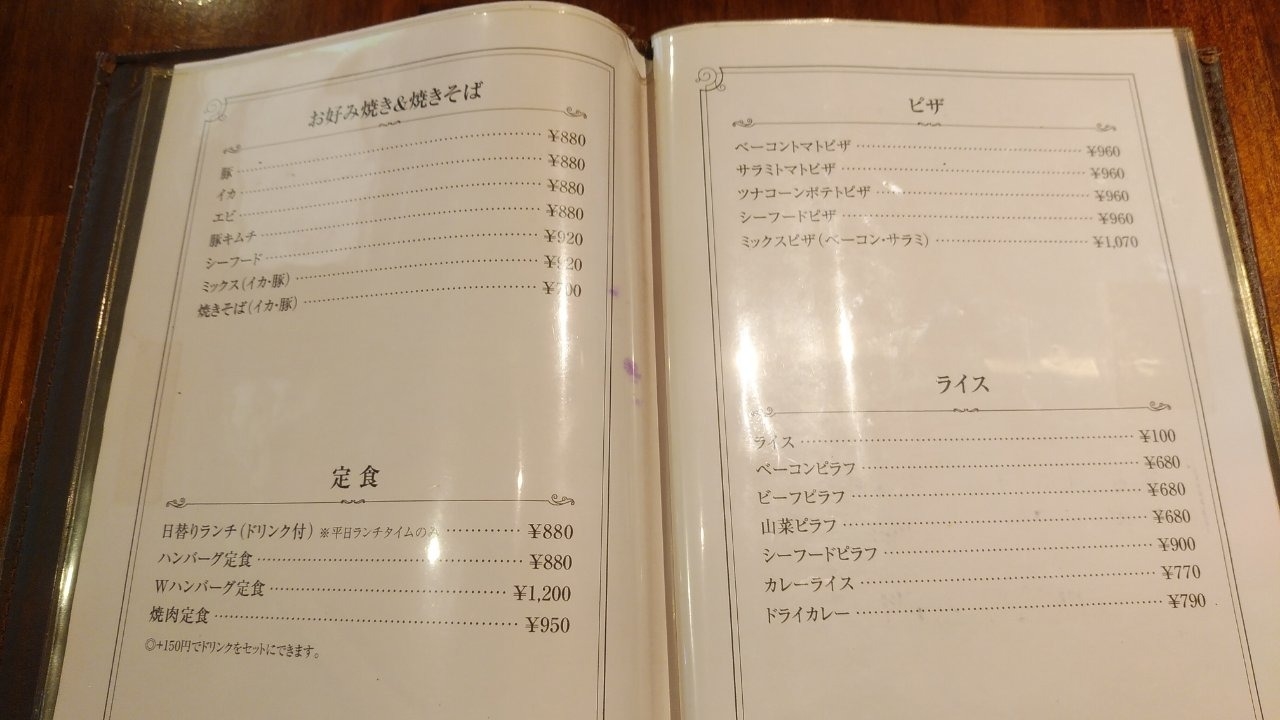 お好み焼き&焼きそば
豚 ¥880
イカ ¥880
エビ ¥880
豚キムチ ¥880
シーフード ¥920
ミックス(イカ・豚) ¥920
焼きそば(イカ・豚) ¥700
定食
日替りランチ(ドリンク付) ※平日ランチタイムのみ ¥880
ハンバーグ定食 ¥880
Wハンバーグ定食 ¥1,200
焼肉定食 ¥950
◎+150円でドリンクをセットにできます。
ピザ
ベーコントマトピザ ¥960
サラミトマトピザ ¥960
ツナコーンポテトピザ ¥960
シーフードピザ ¥960
ミックスピザ(ベーコン・サラミ) ¥1,070
ライス
ライス ¥100
ベーコンピラフ ¥680
ビーフピラフ ¥680
山菜ピラフ ¥680
シーフードピラフ ¥900
カレーライス ¥770
ドライカレー ¥790